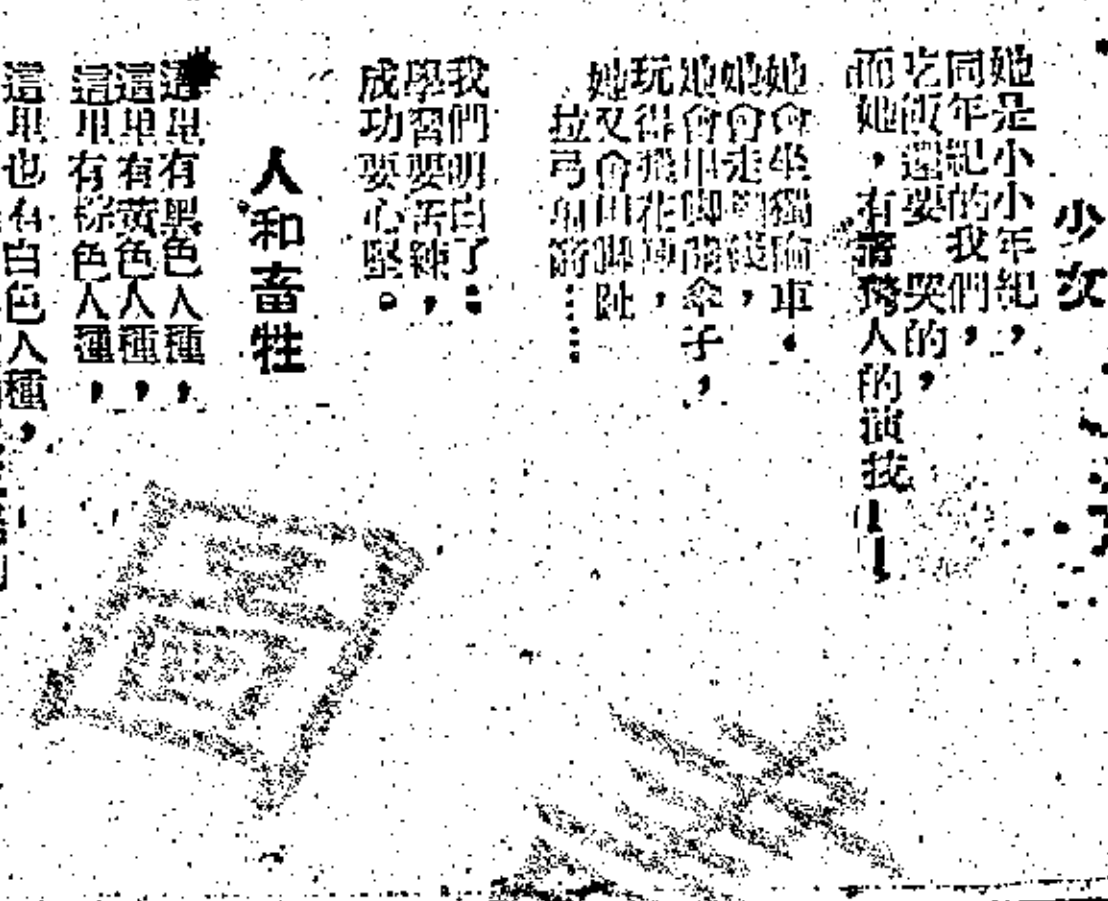 少女
她是小小年紀，
同年紀的我們，
吃飯還要哭的，
而她，有著驚人的演技！！
她會坐獨輪車，
她會走鋼線，
她會用脚蹬傘子，
玩得飛花，
她又會用脚趾
拉弓射箭……
我們明白了：
學習要苦練，
成功要心堅。
人和畜牲
這里有黑色人種，
這里有黃色人種，
這里有棕色人種，
這里也有白色人種，